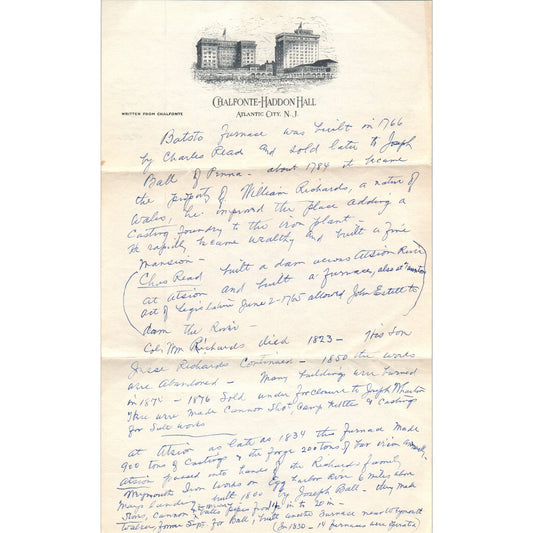 CHALFONTE-HADDON HALL
ATLANTIC CITY, N. J.
WRITTEN FROM CHALFONTE
Batsto Furnace was built in 1766
by Charles Read and sold later to Joseph
Ball of Penna - about 1784 it became
the property of William Richards, a native of
Wales, he improved the place adding a
Casting foundry to the iron plant -
He rapidly became wealthy and built a fine
mansion -
Chas Read built a dam across Atsion River
at Atsion and built a furnace, also at Taunton
act of Legislation June 2 - 1765 allowed John Estell to
dam the River -
Col. Wm Richards died 1823 - His son
Jesse Richards Continued - 1850 the works
were abandoned - Many buildings were burned
in 1874 - 1876 Sold under foreclosure to Joseph Wharton
There were made Cannon Shot, Camp Kettles & Castings
for Salt works
At Atsion as late as 1834 this Furnace Made
900 tons of Castings & the forge 200 tons of bar iron annually
Atsion passed into hands of the Richards family
Weymouth Iron Works on Egg Harbor River 6 miles above
Mays Landing built 1800 by Joseph Ball - they made
Stoves, Cannon & balls pipes from in to 20 in -
Walker, former Supt. for Ball, built another Furnace near Weymouth
(In 1830 - 14 furnaces were operated)